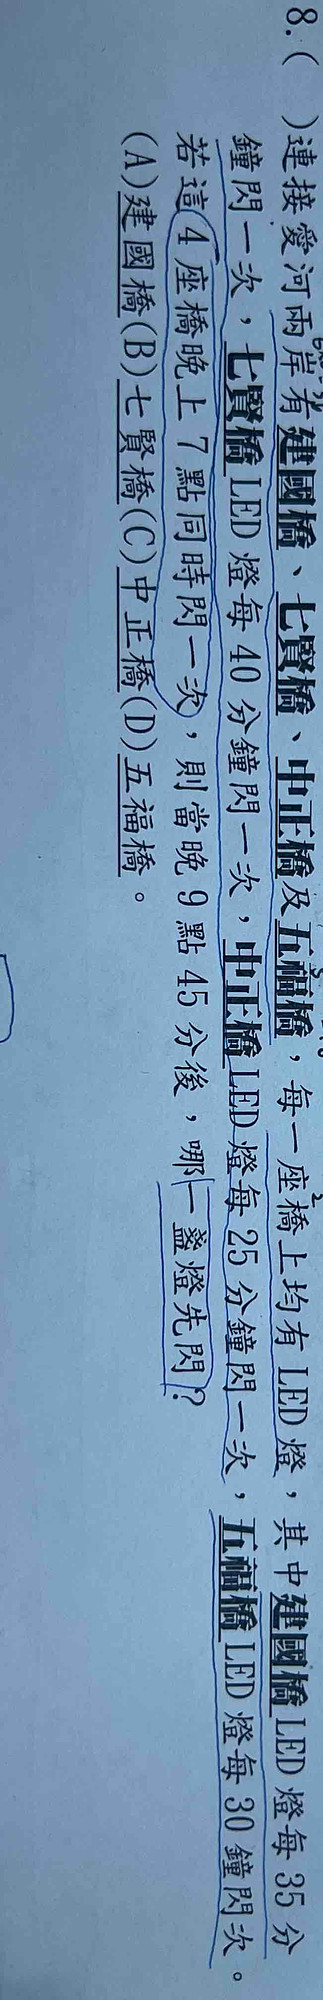 8.( )連接愛河兩岸有建國橋、七賢橋、中正橋及五福橋，每一座橋上均有LED燈，其中建國橋LED燈每35分
鐘閃一次，七賢橋LED燈每40分鐘閃一次，中正橋LED燈每25分鐘閃一次，五福橋LED燈每30鐘閃次。
若這4座橋晚上7點同時閃一次，則當晚9點45分後，哪一盞燈先閃？
(A)建國橋(B)七賢橋(C)中正橋(D)五福橋。